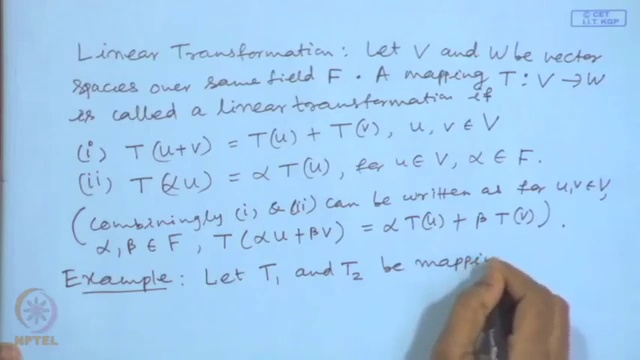 © CET
I.I.T. KGP
Linear Transformation: Let V and W be vector
spaces over same field F. A mapping T: V → W
is called a linear transformation if
(i) T(u+v) = T(u) + T(v), u, v ∈ V
(ii) T(αu) = α T(u), for u ∈ V, α ∈ F.
(Combiningly (i) & (ii) can be written as for u, v ∈ V,
α, β ∈ F, T(αu+βv) = α T(u) + β T(v)).
Example: Let T₁ and T₂ be mappin
NPTEL